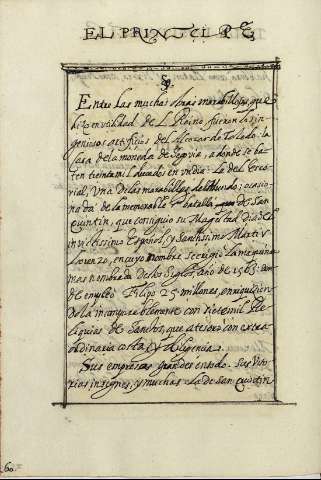 EL PRINCIPE
Entre las muchas obras marabillosas, que
hizo en utilidad de L Reino, fueron los in
geniosos artificios del Alcazar de Toledo. la
casa de la moneda de Segovia, a donde se ba
ten treinta mil ducados en un dia. La del Escu
rial, Una de las marabillas del Mundo; ocasio
nada de la memorable batalla, de San
Quintin, que consiguio su Magestad, Dia de L
invictissimo Español, y Santissimo Martir
Lorenzo, en cuyo nombre se erigio la maquina
mas nombrada de los siglos, año de 1563. don
de empleo Filipo 25 millones, enriquecien
dola incomparablemente con siete mil Re
liquias de Santos, que atesoró con extra
ordinaria costa, y diligencia.
Sus empresas grandes en todo. sus Vito
rias insignes, y muchas. La de San Quintin
60.